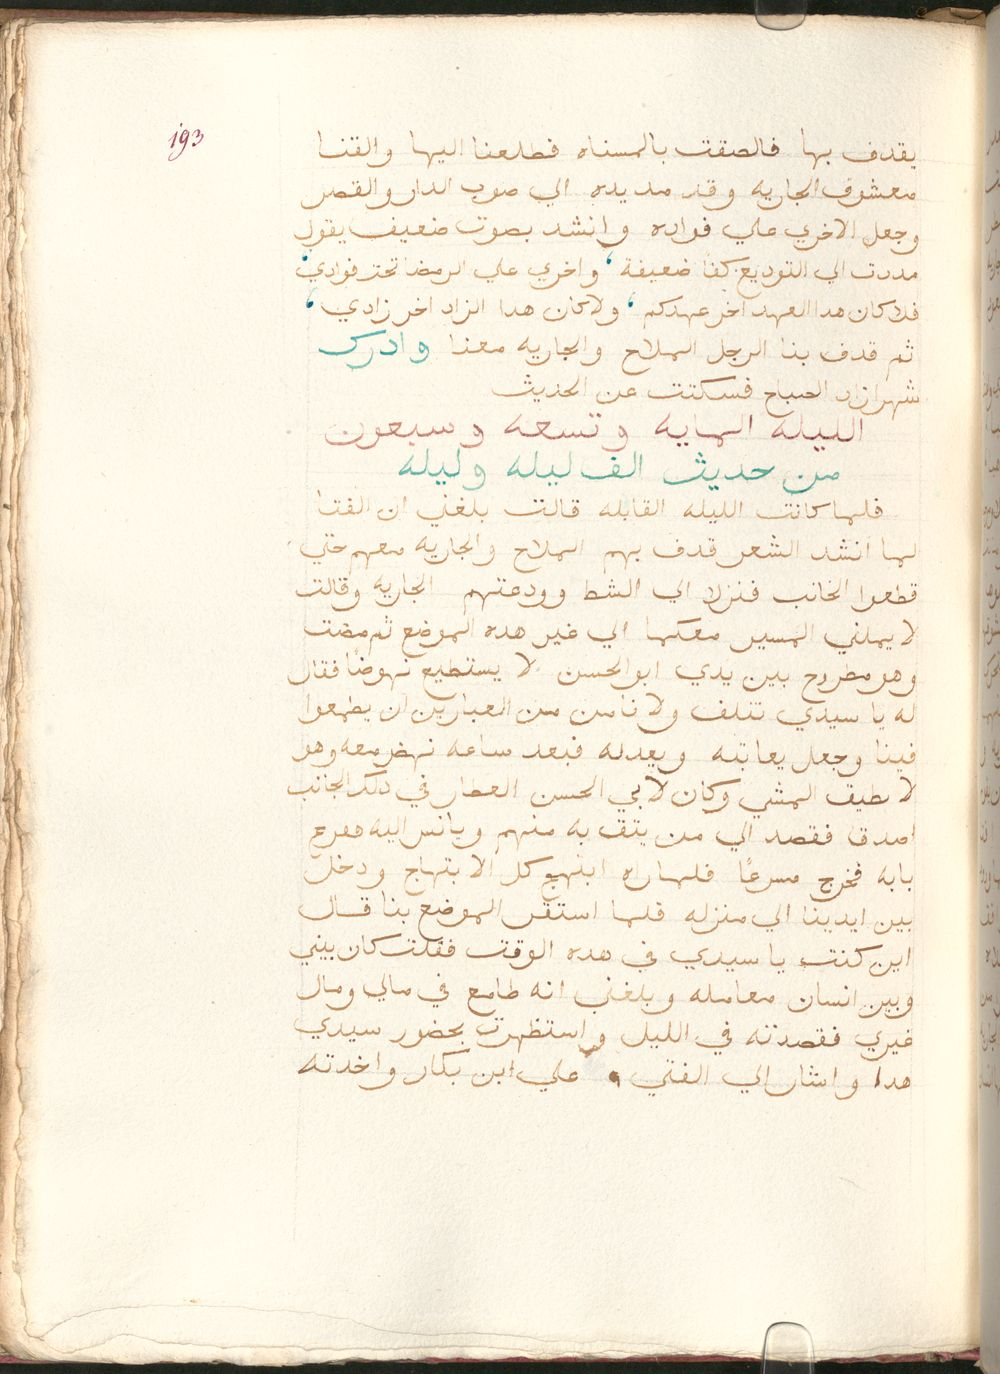 193
يقدف بها فالصقت بالمسناه فطلعنا اليها والقنا
معشوق الجاريه وقد مد يده الي صوب الدار والقصر
وجعل الاخري علي فواده وانشد بصوت ضعيف يقول
مددت الي التوديع كفًا ضعيفة ، واخري علي الرمضا تحت فوادي ،
فلا كان هدا العهد اخر عهدكم ، ولا كان هدا الزاد اخر زادي ،
ثم قدف بنا الرجل الملاح والجاريه معنا وادرك
شهرازاد الصباح فسكتت عن الحديث
الليله المايه وتسعه وسبعون
من حديث الف ليله وليله
فلما كانت الليله القابله قالت بلغني ان الفتا
لما انشد الشعر قدف بهم الملاح والجاريه معهم حتي
قطعوا الجانب فنزلا الي الشط وودعتهم الجاريه وقالت
لا يملني المسير معكما الي غير هده الموضع ثم مضت
وهو مطروح بين يدي ابو الحسن لا يستطيع نهوضًا فقال
له يا سيدي تتلف ولا نامن من العيارين ان يطمعوا
فينا وجعل يعاتبه ويعدله فبعد ساعه نهض معه وهو
لا يطيق المشي وكان لابي الحسن العطار في دلك الجانب
اصدقا فقصد الي من يتق به منهم ويانس اليه فقرع
بابه فخرج مسرعًا فلما راه ابتهج كل الابتهاج ودخل
بين ايدينا الي منزله فلما استقر الموضع بنا قال
اين كنت يا سيدي في هده الوقت فقلت كان بيني
وبين انسان معامله وبلغني انه طامع في مالي ومال
غيري فقصدته في الليل واستظهرت بحضور سيدي
هدا واشار الي الفتي علي ابن بكار واخدته